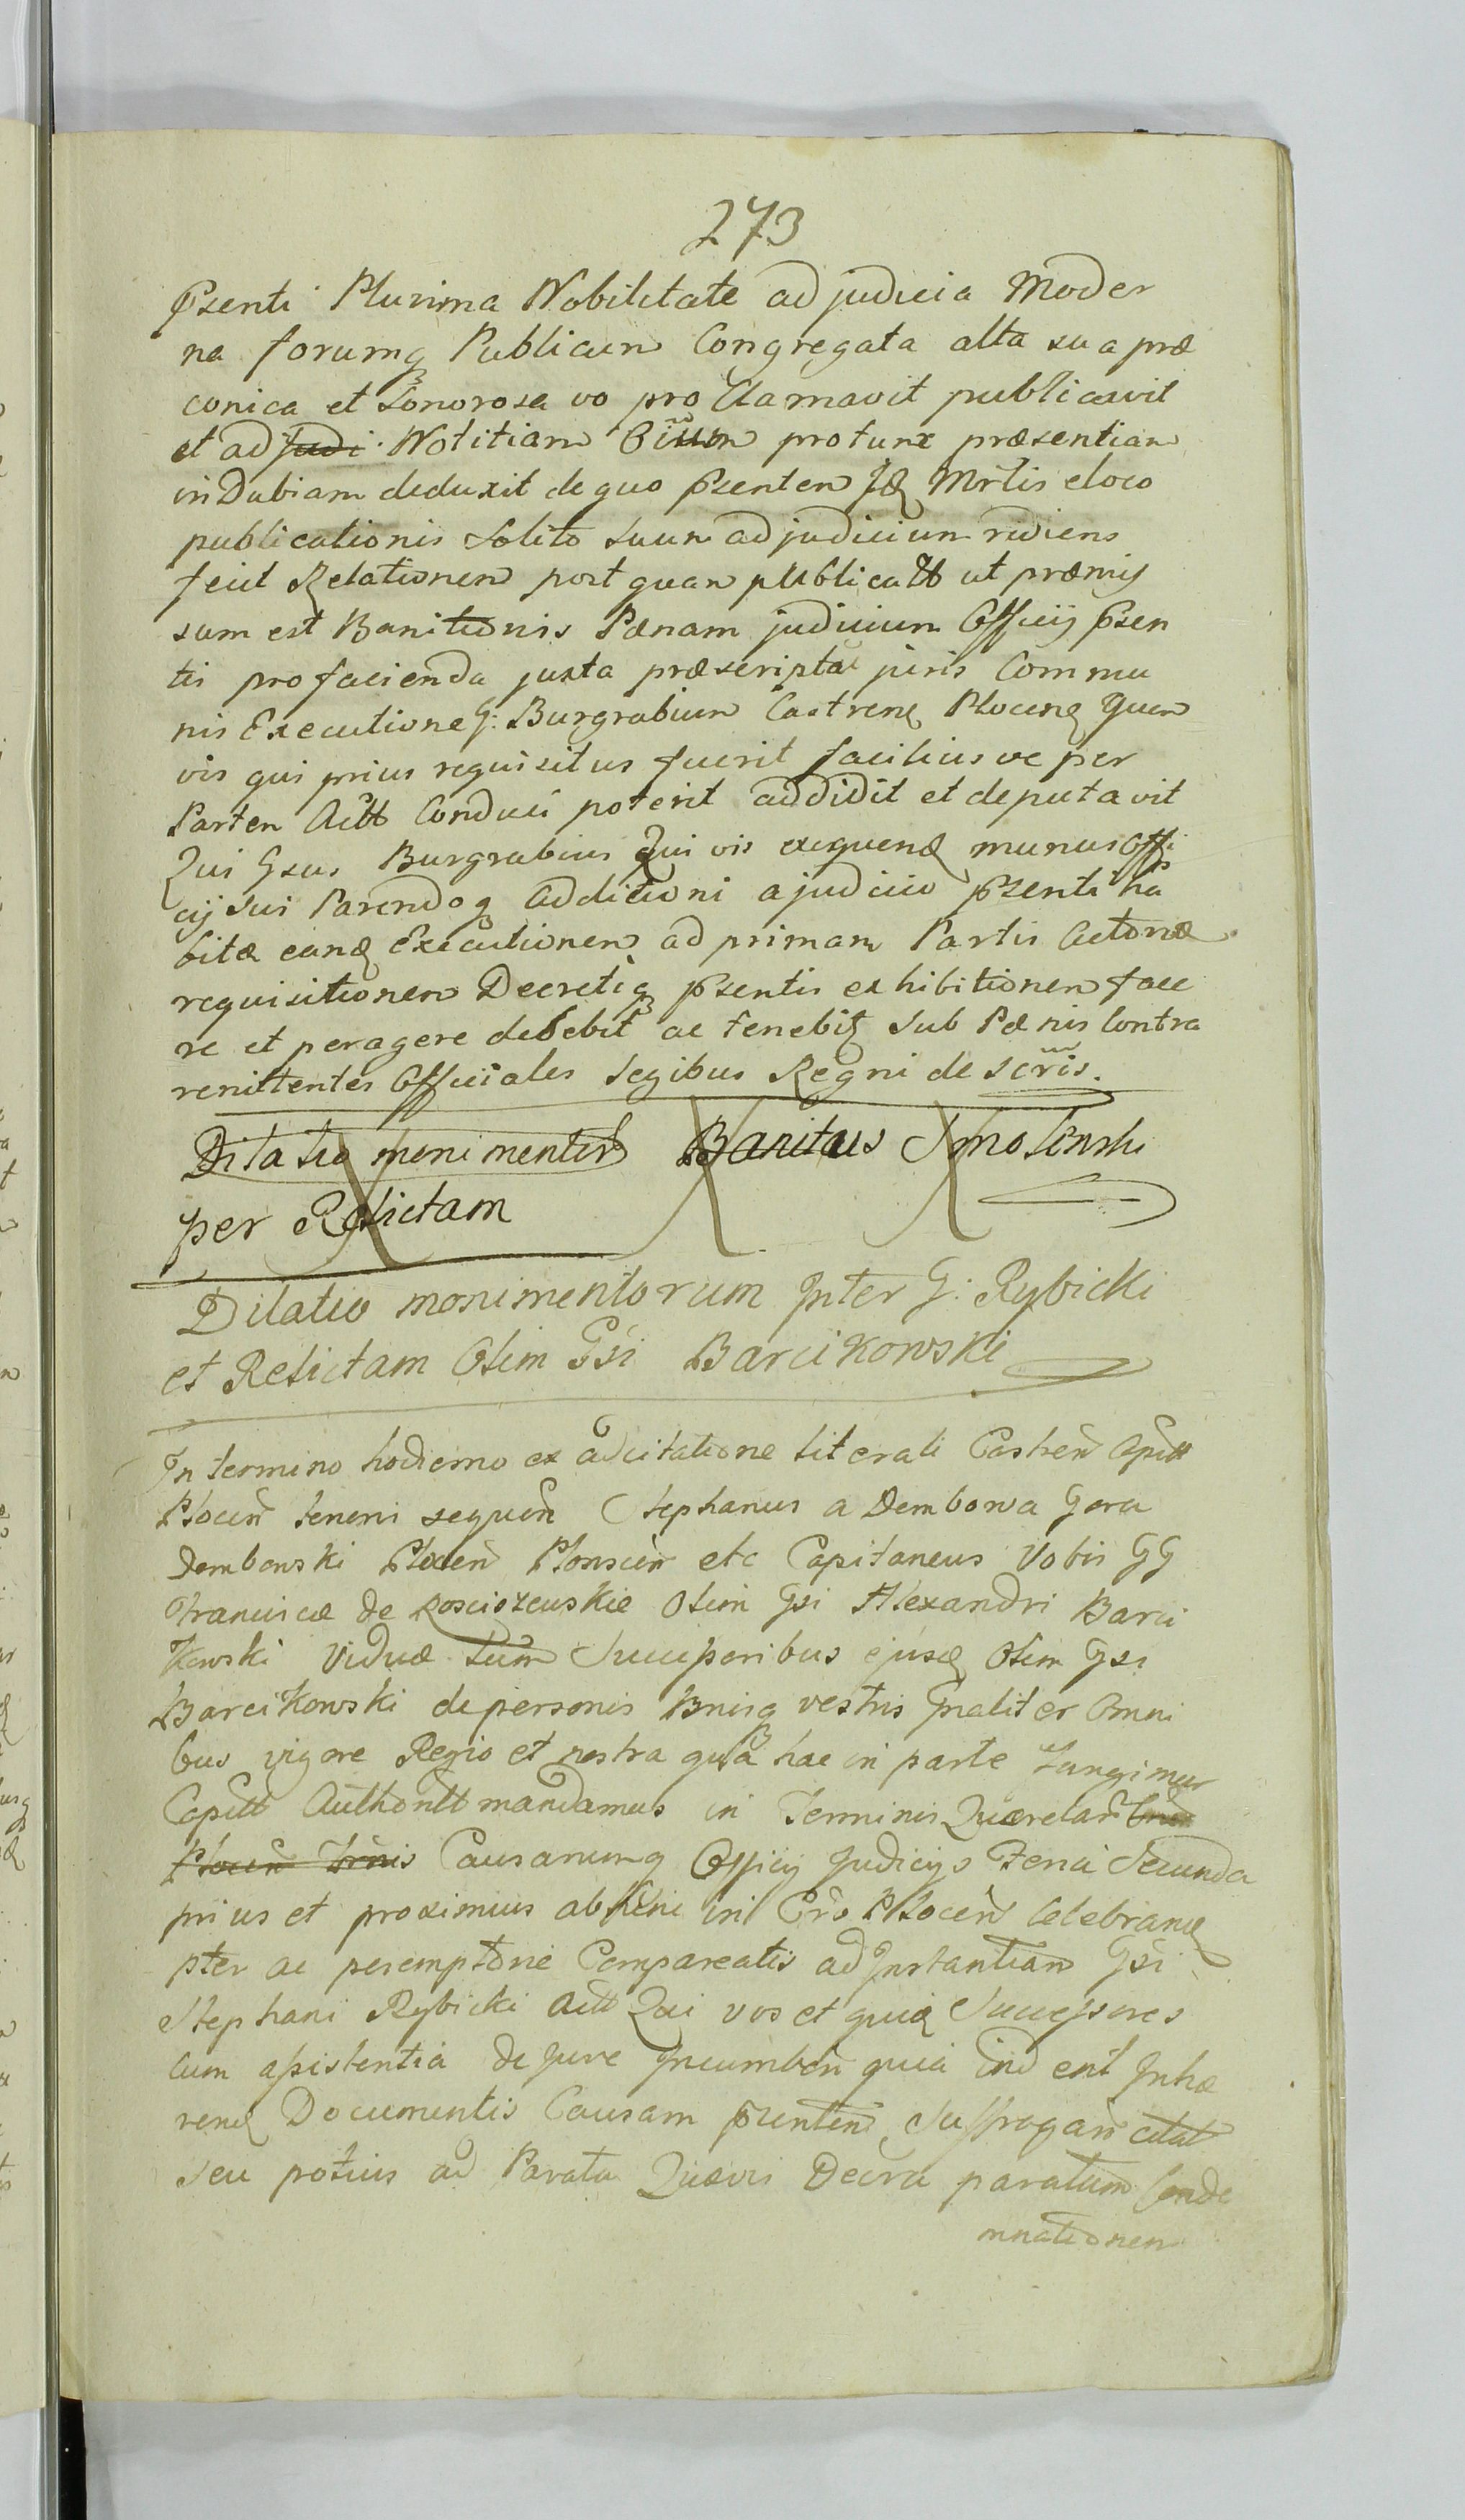 273
Psenti Plurima Nobilitate ad judicia Moder
na forumq Publicum Congregata alta sua præ
conica et Sonorosa vo proclamavit publicavit
et ad Judi Notitiam Oium protunc præsentiam
inDubiam deduxit de quo Psentem Mrlis eloco
publicationis Solito suum ad judicium rediens
fecit Relationem post quam publicatt ut præmis
sum est Banitionis Pænam judicium Officij Psen
tis pro facienda juxta præscripta juris Commu
nis Executione G: Burgrabium Castrenq Plocenq Quem
vis qui prius requisitus fuerit facilius ve per
Partem Actt Conduci poterit addidit et deputavit
Qui Gsus Burgrabius Qui vis exequend munus Offi
cij sui Parendoq addictioni a judicio Psenti ha
bitæ eand Executionem ad primam Partis Actoræ
requisitionem Decretiq Psentis exhibitionem face
re et peragere debebit ac tenebit sub Pænis Contra
renittentes Officiales legibus Regni de scris.
Dilatio monimentor Banitus Smolenski
per Relictam
Dilatio monimentorum Inter G: Rybicki
et Relictam Olim Gsi Barcikowski
In termino hodierno ex adcitatione literali Castren Capitt
Plocen tenoris sequen Stephanus a Dembowa Gora
Dembowski Plocen Plonscen etc Capitaneus Vobis GG
Franciscæ de Rosciszewskie Olim Gsi Alexandri Barci
Kowski Viduæ tum Successoribus ejusd Olim Gsi
Barcikowski de personis Bnisq vestris Gnaliter Omni
bus vigore Regio et nostra qua hac in parte fungimur
Capitt Authoritt mandamus in Terminis Querelar
Plocen Trnis Causarumq Officij Judicijs Feria Secunda
prius et proximius abhinc in Cro Plocen Celebrand
pter ac peremptorie Compareatis ad Instantiam Gsi
Stephani Rybicki Actt Qui vos et quia Successores
cum assistentia de Jure Incumben quia Ind erit Inhæ
rend Documentis Causam Psentem Suffragan citat
seu potius ad Parata Quævis Decra paratum Conde
mnationem